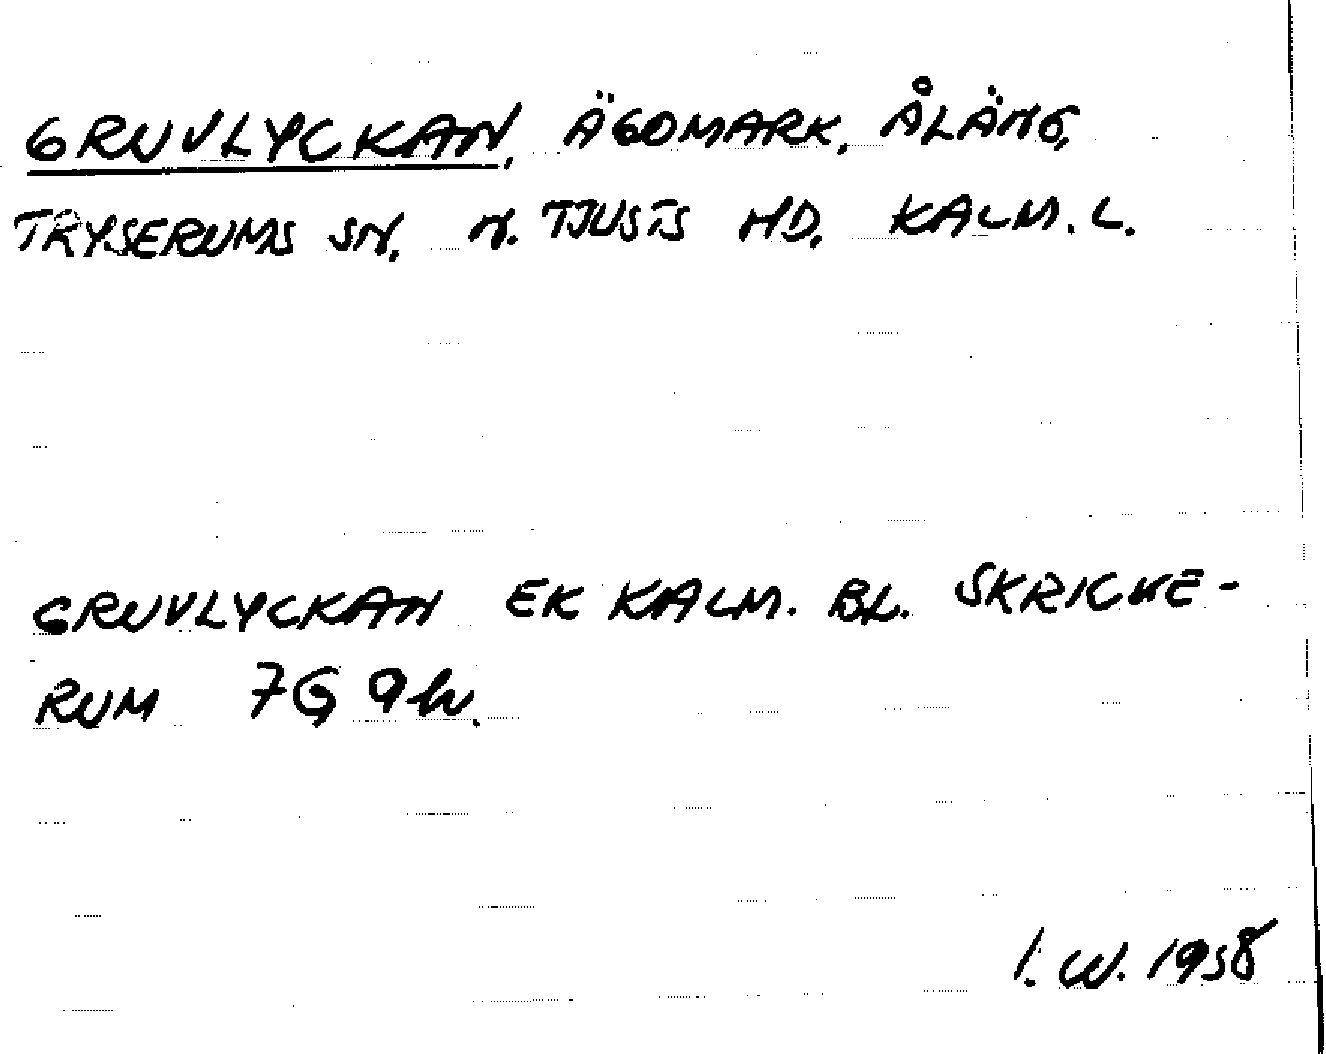 GRUVLYCKAN, ÄGOMARK, ÅLÄNG,
TRYSERUMS SN, N. TJUSTS HD, KALM. L.
GRUVLYCKAN EK KALM. BL. SKRICKE-
RUM 7G 9h.
I. W. 1958